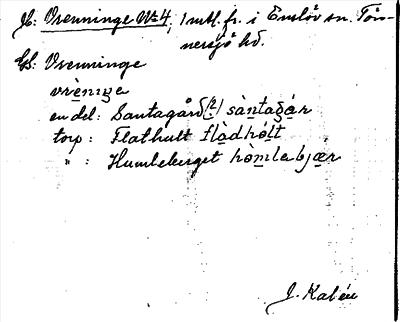 Vrenninge No 4, 1 mtl. fr. i Enslöv sn. Tön-
nersjö hd.
Vrenninge
vrèniŋe
en del: Santagård (?) sàntagár
torp: Flathult flàdhólt
" : Humleberget hòmlebjær
J. Kalén